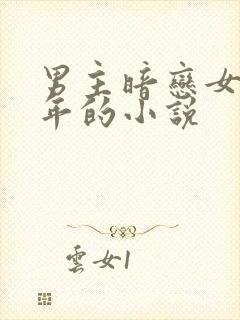 男主暗戀女
年的小說
雲女1